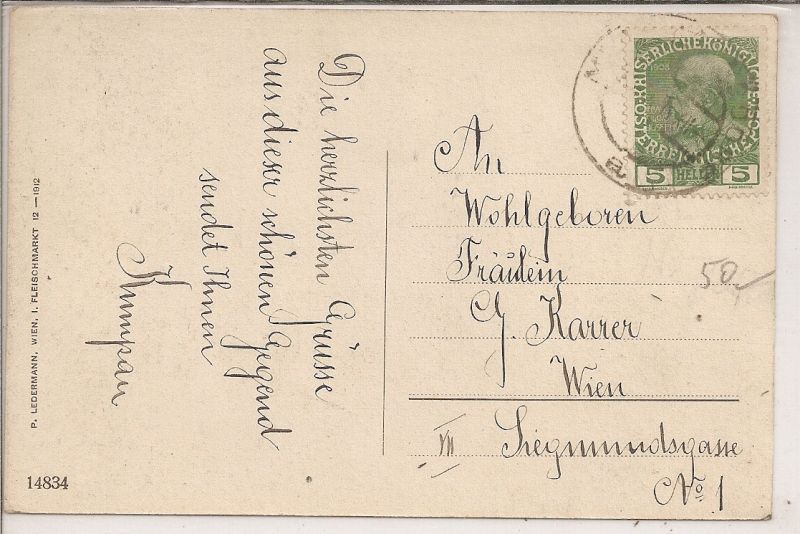 Die herzlichsten Grüsse
aus dieser schönen Gegend
sendet Ihnen
Kumpan
P. LEDERMANN, WIEN, I. FLEISCHMARKT 12 —1912
14834
KAISERLICHEKÖNIGLICHE
5 HELLER 5
An
Wohlgeboren
Fräulein
G. Karrer
Wien
VII Siegmundsgasse
No 1
50,—